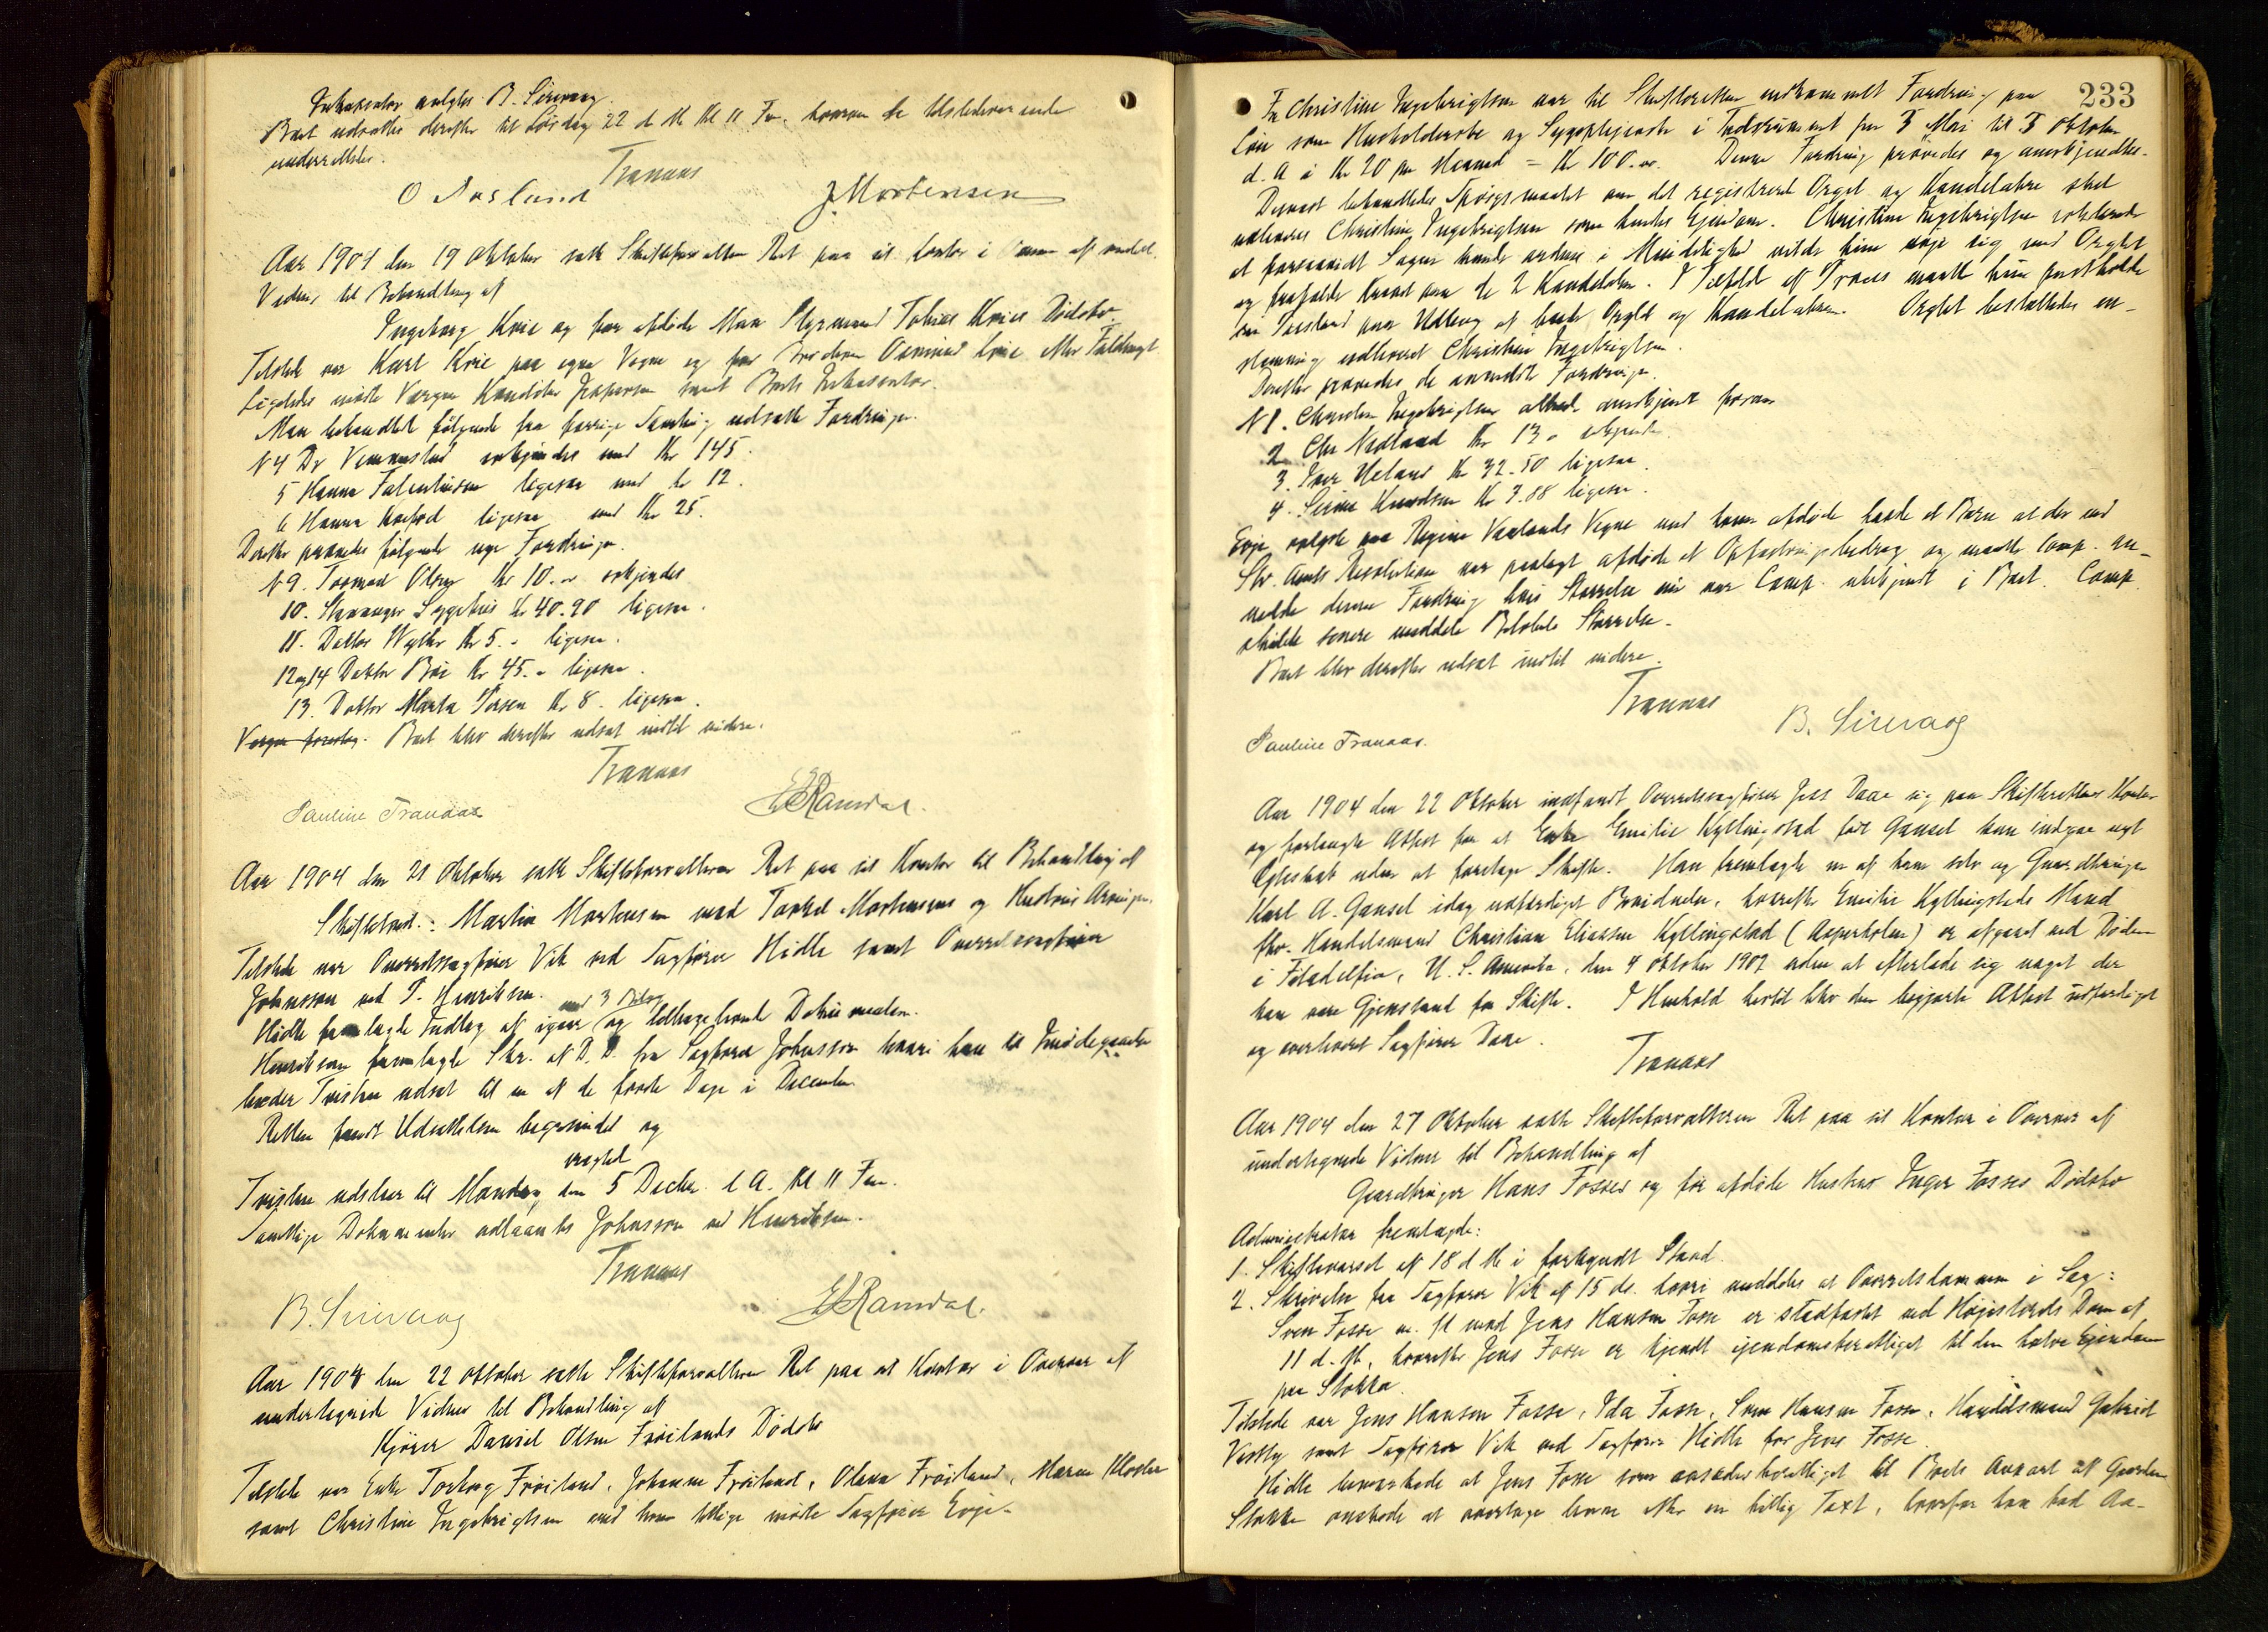 Inkassator valgtes B. Sirevaag.
Boet udsattes derefter til Lørdag 22 d M Kl 11 Fm. hvorom de tilstedeværende
underrettedes.
Tranaas
O Aasland
J. Mortensen
Aar 1904 den 19 Oktober satte Skifteforvalteren Ret paa sit Kontor i Overvær af undert.
Vidner til Behandling af
Ingeborg Kvie og før afdøde Man Styrmand Tobias Kvies Dødsbo.
Tilstede var Karl Kvie paa egne Vegne og for Broderen Osmund Kvie efter Fuldmagt
Ligeledes mødte Værgen Konditor Jespersen samt Boets Inkassator.
Man behandlet følgende fra forrige Samling udsatte Fordringer.
N 4 Dr Vennestad erkjendes med Kr 145.
5 Hanna Falentinsen ligesaa med kr 12.
6 Hanna Aafod ligesaa med Kr 25.
Derefter prøvedes følgende nye Fordringer.
N 9. Tormod Olsen Kr 10.00 erkjendes
10. Stavanger Sygehus Kr 40.90 ligesaa.
11. Doktor Wyller Kr 5.- ligesaa.
12 og 14 Doktor Bøe Kr 45.- ligesaa.
13. Doktor Marta Persen Kr 8. ligesaa.
Værgen foreslog. Boet blev derefter udsat indtil videre.
Tranaas
Pauline Tranaas
E Ramdal.
Aar 1904 den 21 Oktober satte Skifteforvalteren Ret paa sit Kontor til Behandling af
Skiftetvist: Martin Mortensen mod Torkel Mortensens og Hustrus Arvinger.
Tilstede var Overretssagfører Vik ved Sagfører Hidle samt Overretssagfører
Johnsson ved P. Henriksen.
med 3 Bilag
Hidle fremlagte Indlæg af igaar og tilbageleverede Dokumenter.
Henriksen fremlagte Skr. af D. D. fra Sagfører Johnsson hvori han til Imødegaaelse
beder Tvisten udsat til en af de første Dage i December
Retten fandt Udsættelsen begrundet og
eragted
Tvisten udstaar til Mandag den 5 Decbr. d A. Kl 11 Fm.
Samtlige Dokumenter udlaantes Johnsson ved Henriksen.
Tranaas
B. Sirevaag
E Ramdal.
Aar 1904 den 22 Oktober satte Skifteforvalteren Ret paa sit Kontor i Overvær af
undertegnede Vidner til Behandling af
Kjører Daniel Olsen Frøilands Dødsbo
Tilstede var Enke Torborg Frøiland, Johanne Frøiland, Olena Frøiland, Maren Kloster
samt Christine Ingebrigtsen med hvem tillige mødte Sagfører Evje-
233
Fra Christine Ingebrigtsen var til Skifteretten indkommet Fordring paa
Løn som Husholderske og Sygepleierske i Tidsrummet fra 5 Mai til 5 Oktober
d. A a Kr 20 pr Maaned = Kr 100.00. Denne Fordring prøvedes og anerkjendtes.
Dernæst behandledes Spørgsmaalet om det registrerede Orgel og Kandelabre skal
udleveres Christine Ingebrigtsen som hendes Ejendom. Christine Ingebrigtsen erklærede
at forsaavidt Sagen kunde ordnes i Mindelighed vilde hun nøje sig med Orglet
og frafalde Kravet paa de 2 Kandelabre. I Tilfælde af Proces maatte hun fastholde
sin Paastand paa Udlæg af baade Orglet og Kandelabrene. Orglet besluttedes en-
stemmig udleveret Christine Ingebrigtsen.
Derefter prøvedes de anmeldte Fordringer.
N 1. Christine Ingebrigtsen allerede anerkjent foran
2 Chr Nedland Kr 13.- erkjendes
3. Iver Ueland Kr 32.50 ligesaa.
4. Serine Knudsen Kr 7.88 ligesaa.
Evje oplyste paa Regine Vaulands Vegne med hvem afdøde havde et Barn at der ved
Stv. Amts Resolution var paalagt afdøde et Opfostringsbidrag og maatte Comp. an-
melde denne Fordring hvis Størrelse nu var Comp. ubekjendt i Boet. Comp.
skulde senere meddele Beløbets Størrelse.
Boet blev derefter udsat indtil videre.
Tranaas
B. Sirevaag
Pauline Tranaas.
Aar 1904 den 22 Oktober indfandt Overretssagfører Jess Daae sig paa Skifterettens Kontor
og forlangte Attest for at Enke Emilie Kyllingstad født Gausel kan indgaa nyt
Ægteskab uden at foretage Skifte. Han fremlagte en af ham selv og Gaardbruger
Karl A. Gausel idag udfærdiget Bevidnelse, hvorefter Emilie Kyllingstads Mand
fhv. Handelsmand Christian Eliassen Kyllingstad (Asperholm) er afgaaet ved Døden
i Filadelfia, U. S. Amerika, den 4 Oktober 1902 uden at efterlade sig noget der
kan være Gjenstand for Skifte. I Henhold hertil blev den begjærte Attest udfærdiget
og overleveret Sagfører Daae.
Tranaas
Aar 1904 den 27 Oktober satte Skifteforvalteren Ret paa sit Kontor i Overvær af
undertegnede Vidner til Behandling af
Gaardbruger Hans Fosses og før afdøde Hustru Inger Fosses Dødsbo
Administrator fremlagde:
1. Skiftevarsel af 18 d M i forkyndt Stand.
2. Skrivelse fra Sagfører Vik af 15 ds. hvori meddeles at Overretsdommen i Sag:
Sven Fosse m. fl mod Jens Hansen Fosse er stadfæstet ved Højesterets Dom af
11 d. M., hvorefter Jens Fosse er kjendt ejendomsberettiget til den halve Ejendom
paa Stokka.
Tilstede var Jens Hansen Fosse, Ida Fosse, Sven Hansen Fosse, Handelsmand Gabriel
Vestly samt Sagfører Vik ved Sagfører Hidle for Jens Fosse.
Hidle bemærkede at Jens Fosse som aasædesberettiget til Boets Anpart af Gaarden
Stokka ønskede at overtage denne efter en billig Taxt, hvorfor han bad Aa-